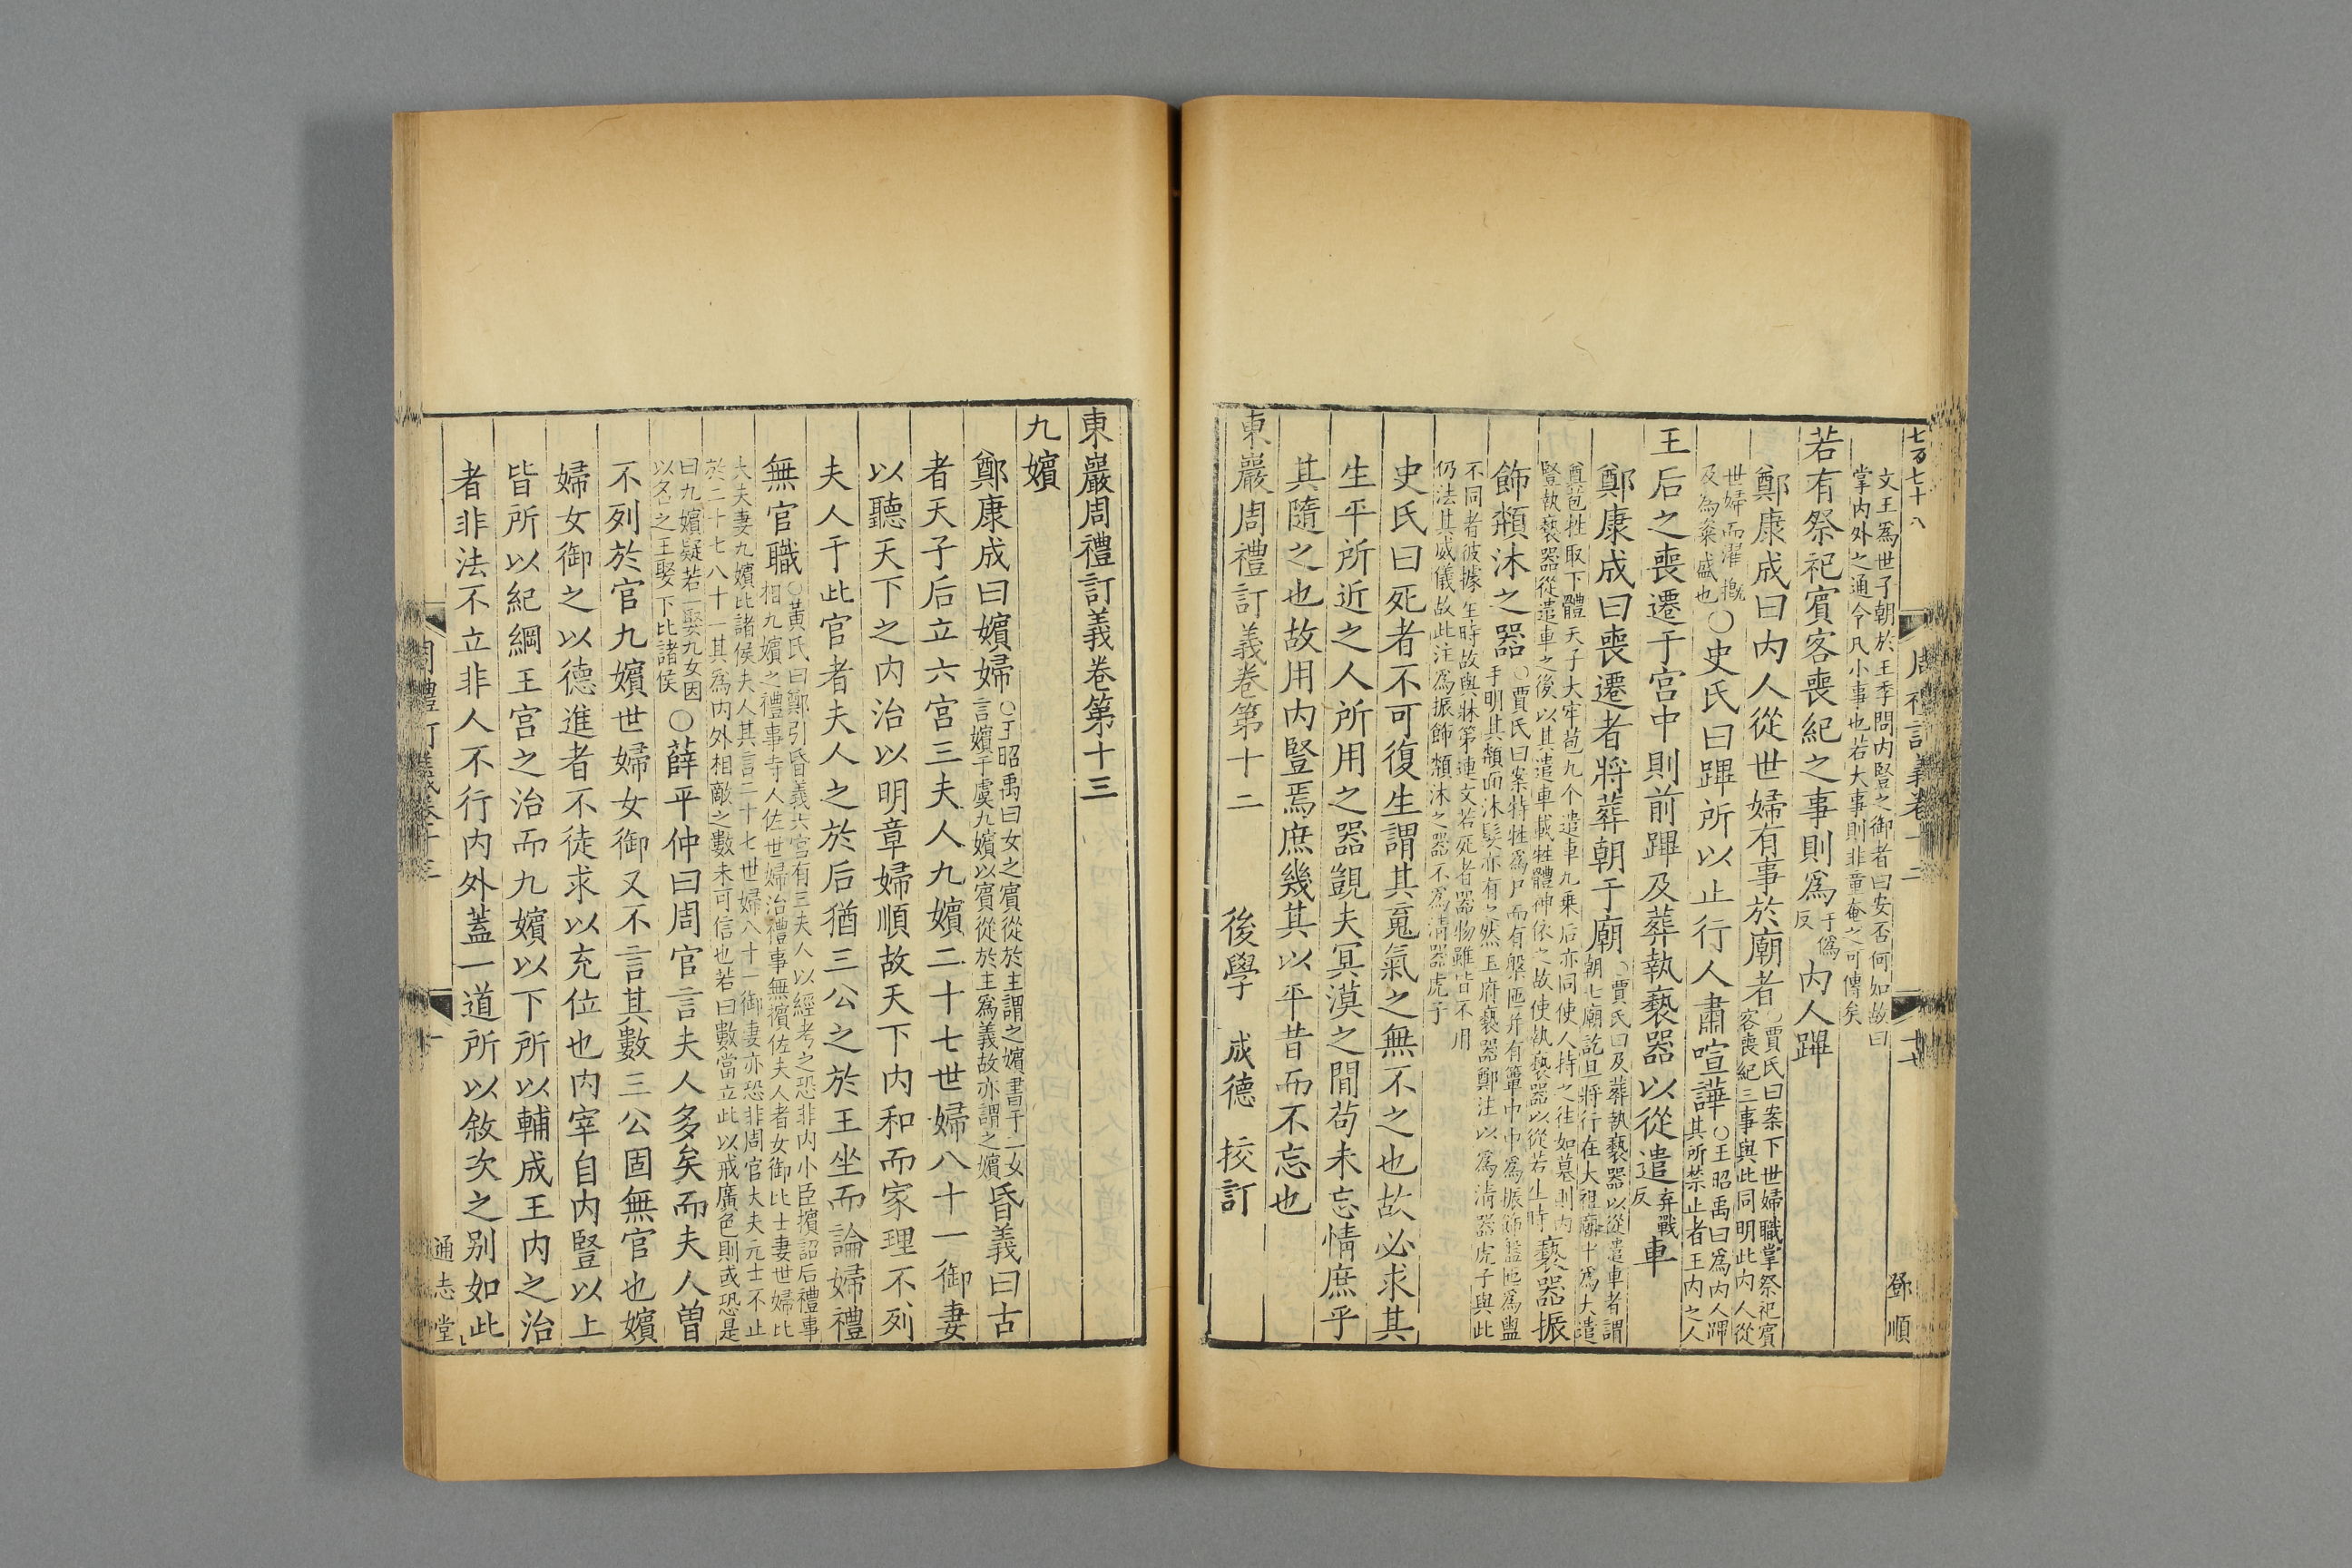 七百七十八
周禮訂義卷十二
鄧順
文王爲世子朝於王季問內豎之御者曰安否何如故曰
掌內外之通令凡小事也若大事則非童奄之可傳矣
若有祭祀賓客喪紀之事則爲于僞反內人蹕
鄭康成曰內人從世婦有事於廟者○賈氏曰案下世婦職掌祭祀賓客喪紀三事與此同明此內人從
世婦而濯摡及為粢盛也○史氏曰蹕所以止行人肅喧譁○王昭禹曰爲內人蹕其所禁止者王內之人
王后之喪遷于宮中則前蹕及葬執褻器以從遣弃戰反車
鄭康成曰喪遷者將葬朝于廟○賈氏曰及葬執褻器以從遣車者謂朝七廟訖且將行在大祖廟中爲大遣
奠苞牲取下體天子大牢苞九个遣車九乘后亦同使人持之往如墓則內豎執褻器從遣車之後以其遣車載牲體神依之故使執褻器以從若生時褻器振
飾頮沐之器○賈氏曰案特牲爲尸而有槃匜幷有簞巾巾爲振飾盤匜為盥手明其頮面沐髮亦有之然玉府褻器鄭注以爲淸器虎子與此
不同者彼據生時故與牀笫連文若死者器物雖皆不用仍法其威儀故此注爲振飾頮沐之器不爲淸器虎子
史氏曰死者不可復生謂其䰟氣之無不之也故必求其
生平所近之人所用之器覬夫冥漠之間苟未忘情庶乎
其隨之也故用內豎焉庶幾其以平昔而不忘也
東巖周禮訂義卷第十二 後學 成德 挍訂
東巖周禮訂義卷第十三
九嬪
鄭康成曰嬪婦○王昭禹曰女之賓從於主謂之嬪書于二女言嬪于虞九嬪以賓從於主爲義故亦謂之嬪昏義曰古
者天子后立六宮三夫人九嬪二十七世婦八十一御妻
以聽天下之內治以明章婦順故天下內和而家理不列
夫人于此官者夫人之於后猶三公之於王坐而論婦禮
無官職○黃氏曰鄭引昏義六宮有三夫人以經考之恐非內小臣擯詔后禮事相九嬪之禮事寺人佐世婦治禮事無擯佐夫人者女御比士妻世婦比
大夫妻九嬪比諸侯夫人其言二十七世婦八十一御妻亦恐非周官大夫元士不止於二十七八十一其爲內外相敵之數未可信也若曰數當立此以戒廣色則或恐是
曰九嬪疑若一娶九女因以名之王娶下比諸侯○薛平仲曰周官言夫人多矣而夫人曽
不列於官九嬪世婦女御又不言其數三公固無官也嬪
婦女御之以德進者不徒求以充位也內宰自內豎以上
皆所以紀綱王宮之治而九嬪以下所以輔成王內之治
者非法不立非人不行內外蓋一道所以敘次之别如此
周禮訂義卷十三
一
通志堂